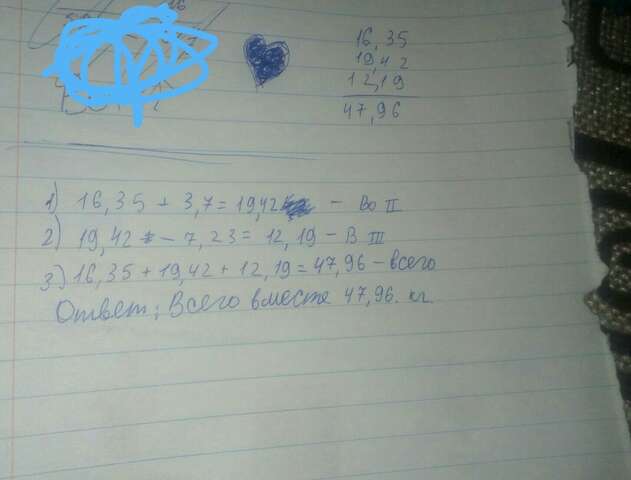 16,35
19,42
12,19
47,96
1) 16,35 + 3,7 = 19,42 - Во II
2) 19,42 - 7,23 = 12,19 - В III
3) 16,35 + 19,42 + 12,19 = 47,96 - всего
Ответ: Всего вместе 47,96. кг.